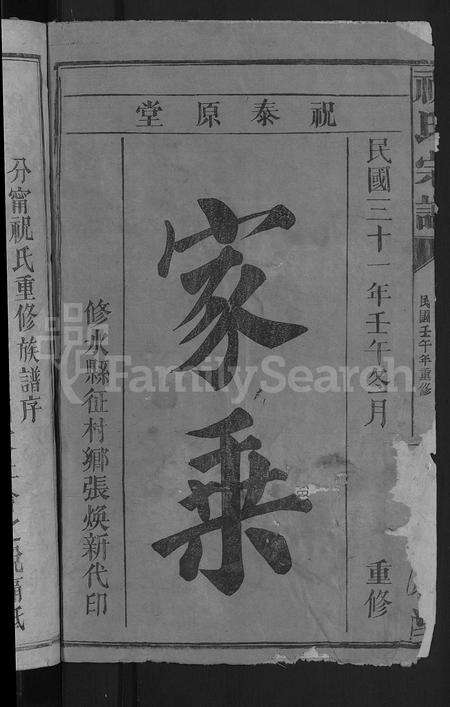 祝氏宗譜
民國壬午年重修
祝泰原堂
民國三十一年壬午冬月 重修
家乘
修水縣征村鄉張煥新代印
分甯祝氏重修族譜序
FamilySearch